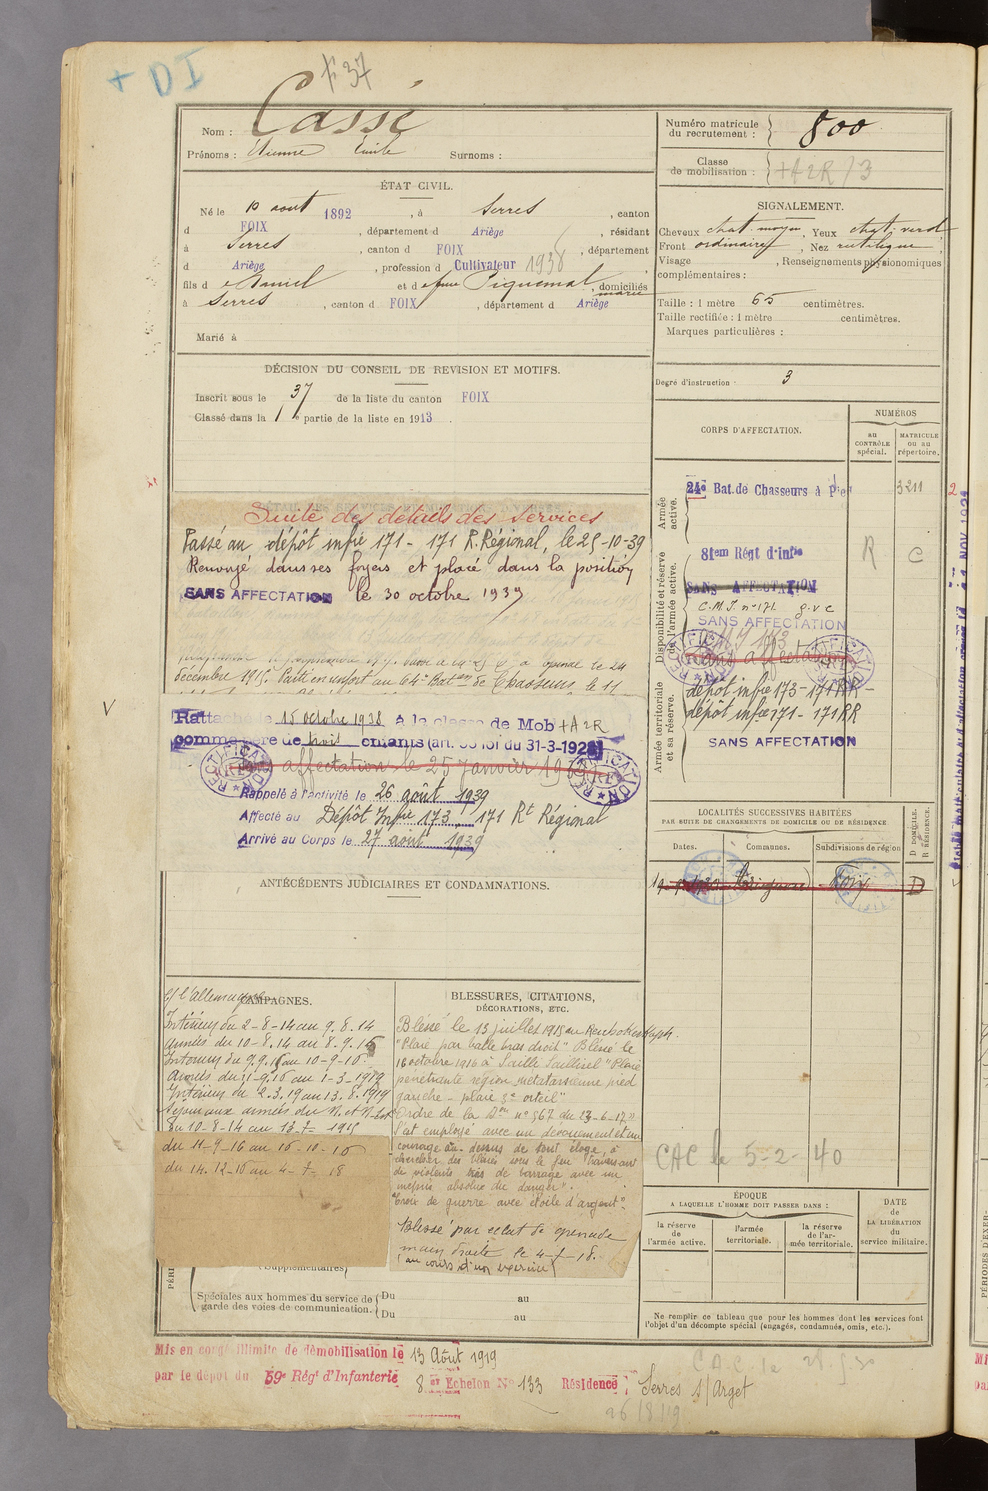 + DI
F37
Nom : Cassé
Prénoms : Etienne Emile Surnoms :
ÉTAT CIVIL.
Né le 10 aout 1892, à Serres, canton
d FOIX, département d Ariège, résidant
à Serres, canton d FOIX, département
d Ariège, profession d Cultivateur 1938
fils d e Daniel et d e feue Piquemal marie, domiciliés
à Serres, canton d FOIX, département d Ariège
Marié à
DÉCISION DU CONSEIL DE REVISION ET MOTIFS.
Inscrit sous le 37 de la liste du canton FOIX
Classé dans la 1re partie de la liste en 1913.
Suite des détails des services
Passé au dépôt infie 171 - 171 R. Régional, le 25-10-39
Renvoyé dans ses foyers et placé dans la position
SANS AFFECTATION le 30 octobre 1939
à épinal le 24
décembre 1915. Parti en renfort au 64e Baton de Chasseurs le 11
Rattaché le 15 octobre 1938 à la classe de Mob +A2R
comme père de trois enfants (art. 58 loi du 31-3-1928)
affectation le 25 janvier 1939
RECTIFICATION
RECTIFICATION
Rappelé à l'activité le 26 août 1939
Affecté au Dépôt Infie 173, 171 Rt Régional
Arrivé au Corps le 27 août 1939
ANTÉCÉDENTS JUDICIAIRES ET CONDAMNATIONS.
CAMPAGNES.
c/ l'allemagne
Intérieur du 2-8-14 au 9.8.14
Armées du 10-8.14 au 8.9.16
Intérieur du 9.9.16 au 10-9-16
Armées du 11-9.16 au 1-3-1919
Intérieur du 2.3.19 au 13.8.1919
Séjour aux armées du N. et N. Est
Du 10-8-14 au 13-7-1915
du 11-9-16 au 16-10-16
du 14.12-16 au 4-7-18
BLESSURES, CITATIONS,
DÉCORATIONS, ETC.
Blessé le 13 juillet 1915 au Reichackerkopf.
"Plaie par balle bras droit" Blessé le
16 octobre 1916 à Sailly Saillisel "Plaie
pénétrante région métatarsienne pied
gauche - plaie 3e orteil"
Ordre de la Don no 567 du 13-6-17
S'est employé avec un dévouement et un
courage au dessus de tout éloge, à
chercher des blessés sous le feu traversant
de violents tirs de barrage avec un
mépris absolu du danger".
Croix de guerre avec étoile d'argent".
Blessé par éclat de grenade
main droite le 4-7-18.
(au cours d'un exercice)
(Supplémentaires)
Spéciales aux hommes du service de garde des voies de communication.
Du au
Du au
Mis en congé illimité de démobilisation le 13 Août 1919
par le dépôt du 59e Régt d'Infanterie
8 em Echelon No 133 Résidence : Serres s/ Arget
Numéro matricule du recrutement : 800
Classe de mobilisation : +A2R/3
SIGNALEMENT.
Cheveux chat. moyen, Yeux chat. verd
Front ordinaire, Nez rectiligne
Visage, Renseignements physionomiques
complémentaires :
Taille : 1 mètre 65 centimètres.
Taille rectifiée : 1 mètre centimètres.
Marques particulières :
Degré d'instruction 3
CORPS D'AFFECTATION.
NUMÉROS
au CONTRÔLE spécial.
MATRICULE ou au répertoire.
Armée active.
24e Bat. de Chasseurs à pied 3211
Disponibilité et réserve de l'armée active.
81em Régt d'infie R C
SANS AFFECTATION
C.M.I. no 171 g.v.c
SANS AFFECTATION
Sans affectation
RECTIFICATION
RECTIFICATION
Armée territoriale et sa réserve.
dépôt infie 173-171 RR -
dépôt infie 171 - 171 RR
SANS AFFECTATION
LOCALITÉS SUCCESSIVES HABITÉES
PAR SUITE DE CHANGEMENTS DE DOMICILE OU DE RÉSIDENCE.
Dates. Communes. Subdivisions de région
D DOMICILE. R RÉSIDENCE.
D
CAC le 5-2-40
ÉPOQUE
A LAQUELLE L'HOMME DOIT PASSER DANS :
la réserve de l'armée active.
l'armée territoriale.
la réserve de l'armée territoriale.
DATE
de
LA LIBÉRATION
du
service militaire.
Ne remplir ce tableau que pour les hommes dont les services font
l'objet d'un décompte spécial (engagés, condamnés, omis, etc.).
26/8/19
PÉRIODES D'EXER-